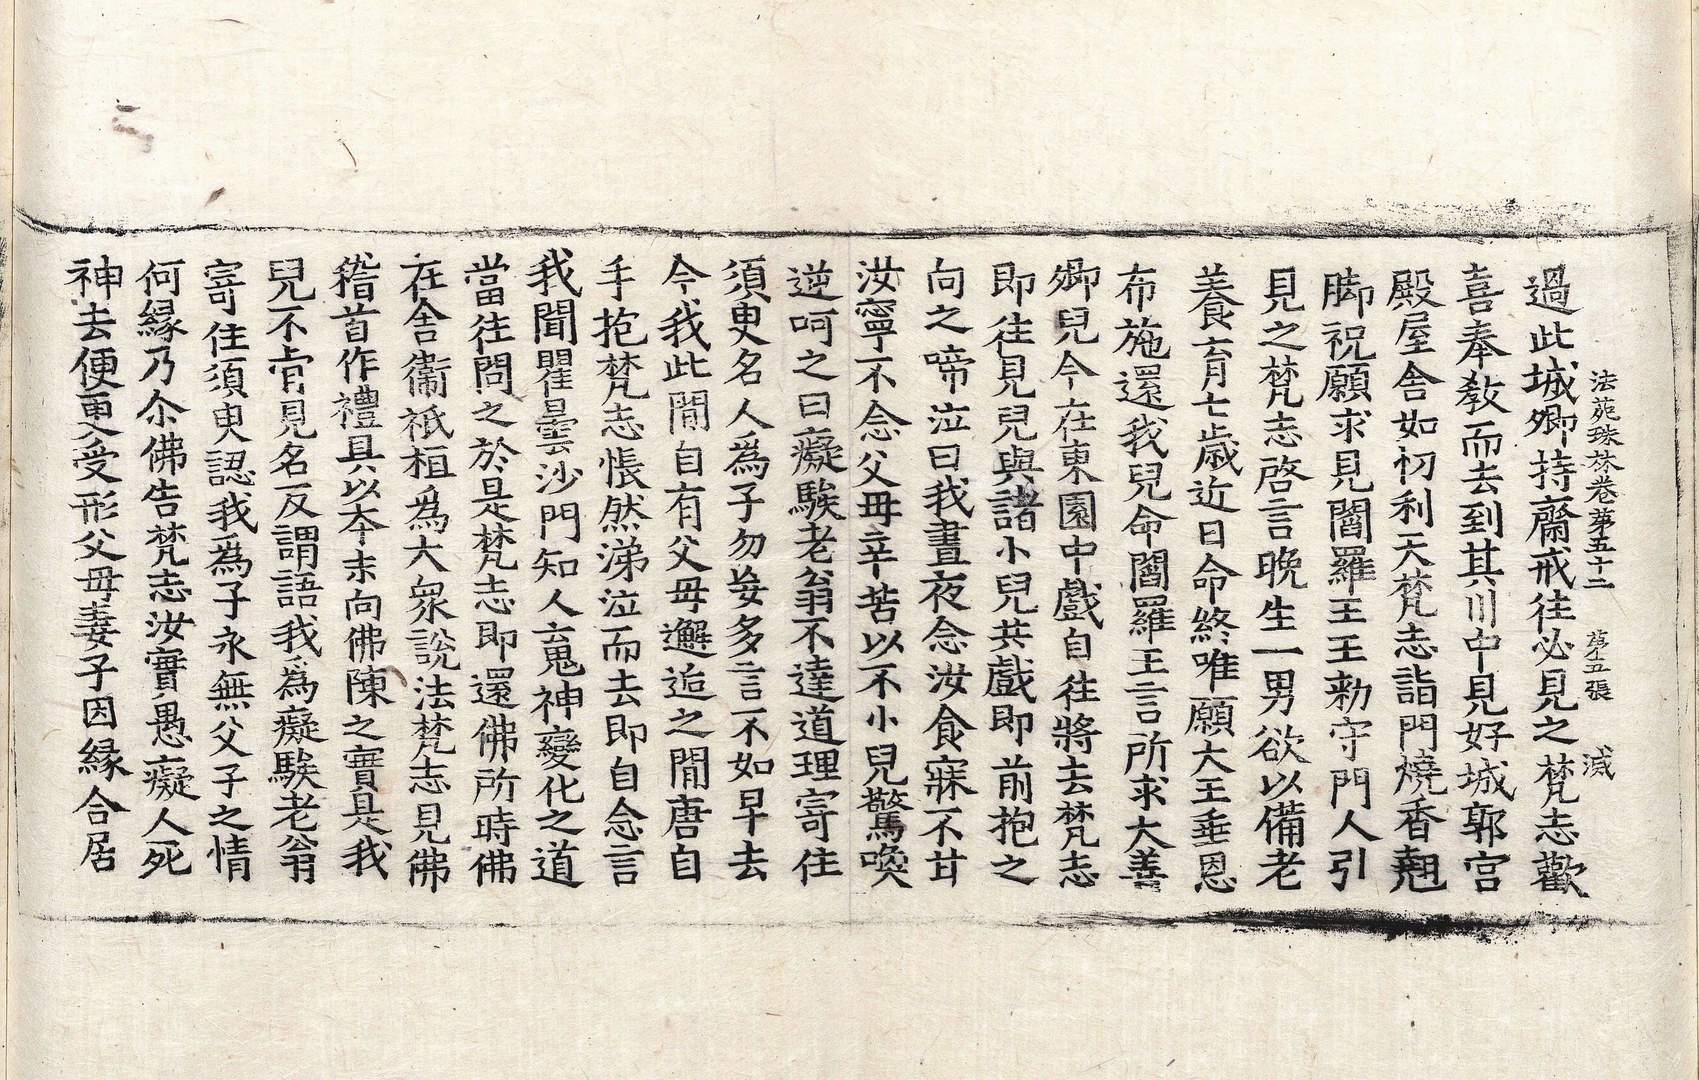 法苑珠林卷第五十二 第十五張 滅
過此城卿持齋戒往必見之梵志歡
喜奉敎而去到其川中見好城郭宮
殿屋舍如忉利天梵志詣門燒香翹
脚祝願求見閻羅王王勑守門人引
見之梵志啓言晚生一男欲以備老
養育七歲近日命終唯願大王垂恩
布施還我兒命閻羅王言所求大善
卿兒今在東園中戲自往將去梵志
即往見兒與諸小兒共戲即前抱之
向之啼泣曰我晝夜念汝食寐不甘
汝寧不念父母辛苦以不小兒驚喚
逆呵之曰癡騃老翁不達道理寄住
須臾名人爲子勿妄多言不如早去
今我此閒自有父母邂逅之閒唐自
手抱梵志悵然涕泣而去即自念言
我聞瞿曇沙門知人䰟神變化之道
當往問之於是梵志即還佛所時佛
在舍衞祇桓爲大衆說法梵志見佛
稽首作禮具以夲末向佛陳之實是我
兒不肯見名反謂語我爲癡騃老翁
寄住須臾認我爲子永無父子之情
何縁乃尒佛告梵志汝實愚癡人死
神去便更受形父母妻子因縁合居